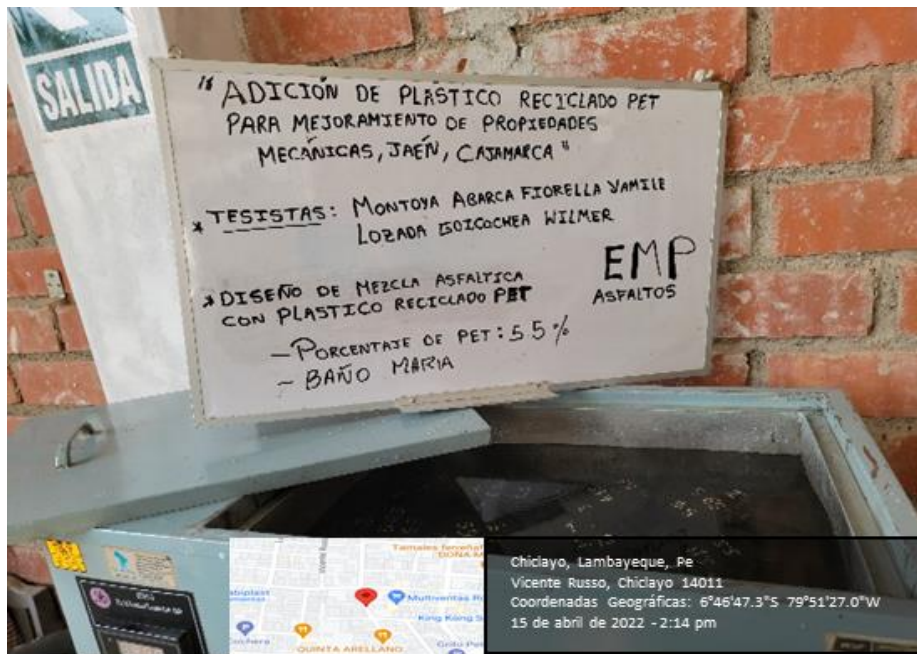 SALIDA
"ADICIÓN DE PLÁSTICO RECICLADO PET
PARA MEJORAMIENTO DE PROPIEDADES
MECÁNICAS, JAÉN, CAJAMARCA"
* TESISTAS: MONTOYA ABARCA FIORELLA YAMILE
LOZADA GOICOCHEA WILMER
* DISEÑO DE MEZCLA ASFALTICA
CON PLASTICO RECICLADO PET
EMP
ASFALTOS
- PORCENTAJE DE PET: 5.5%
- BAÑO MARIA
DOÑA M
Multiventas
King Kong S
QUINTA ARELLANO
Cochera
Chiclayo, Lambayeque, Pe
Vicente Russo, Chiclayo 14011
Coordenadas Geográficas: 6°46'47.3"S 79°51'27.0"W
15 de abril de 2022 - 2:14 pm